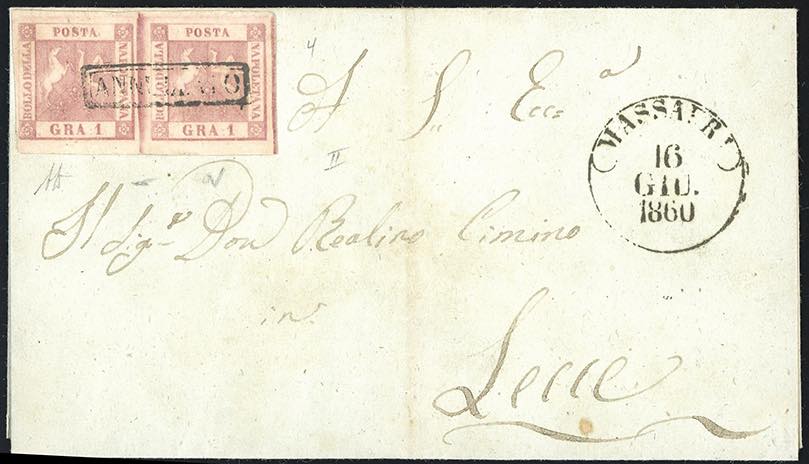 POSTA
BOLLO DELLA
NAPOLETANA
GRA 1
POSTA
BOLLO DELLA
NAPOLETANA
GRA 1
ANNULLATO
4
A S. Ecca
MASSAFRA
16
GIU.
1860
II
Il Sigr Don Realino Cimino
in
Lecce